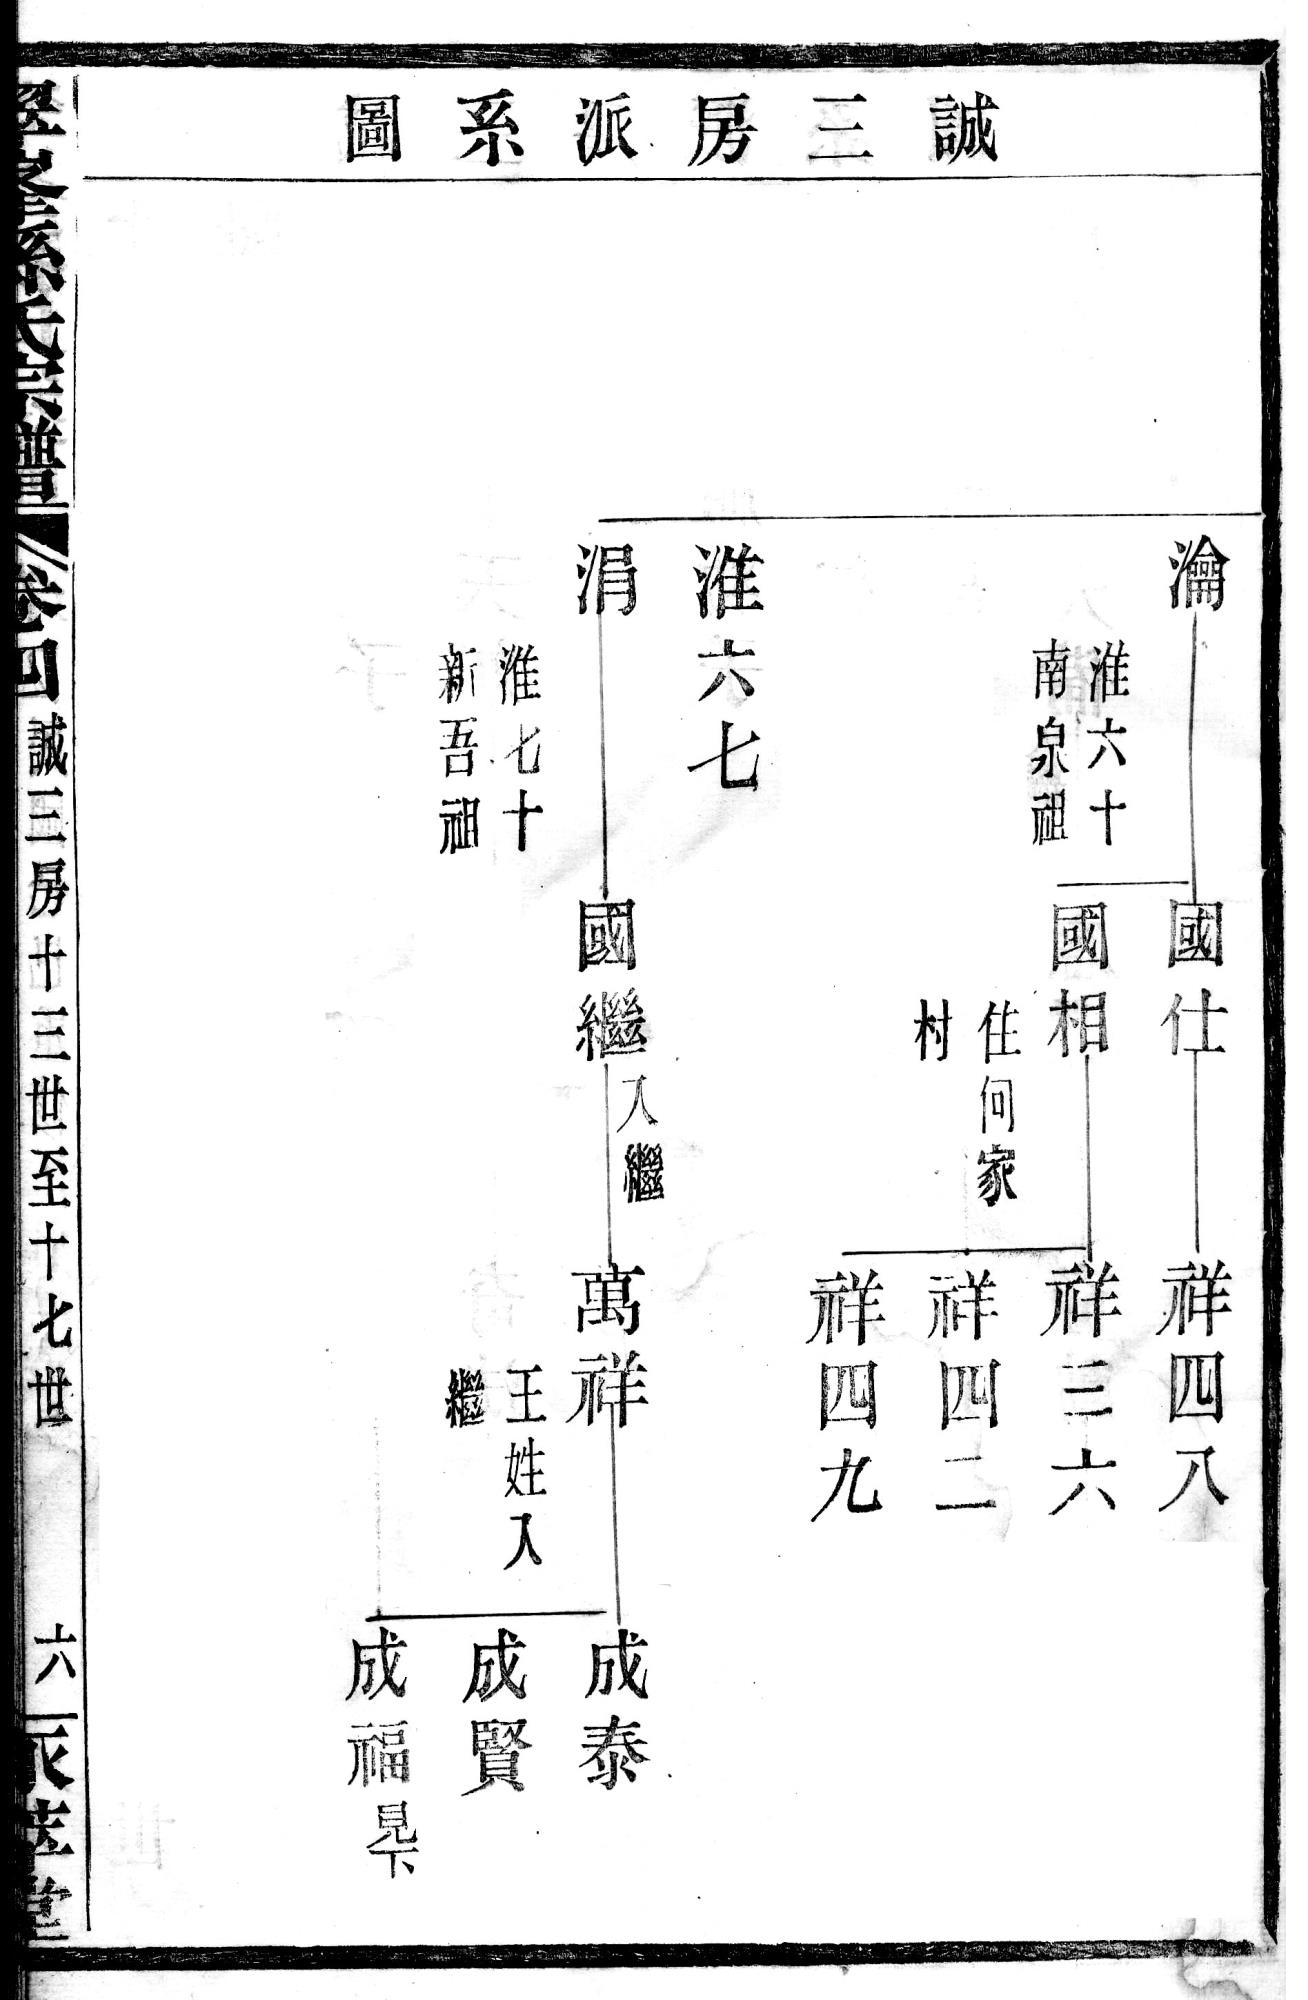 誠三房派系圖
瀹
淮六十
南泉祖
淮六七
涓
淮七十
新吾祖
國仕
國相
住何家
村
國繼
入繼
祥四八
祥三六
祥四二
祥四九
萬祥
王姓入
繼
成泰
成賢
成福
見下
孫氏宗譜
卷四
誠三房十三世至十七世
六
堂